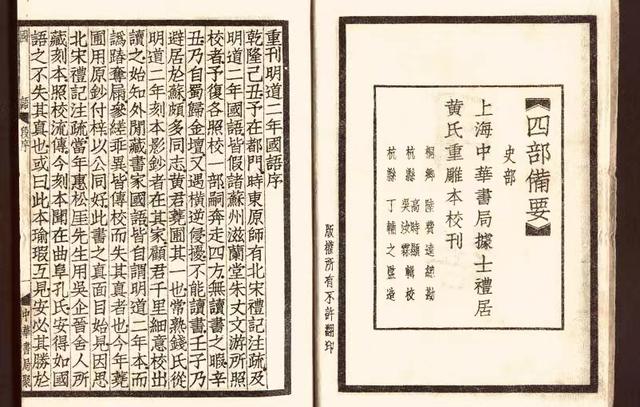 【四部備要】
史部
上海中華書局據士禮居
黃氏重雕本校刊
桐鄉 陸費逵 總勘
杭縣 高時顯 吳汝霖 輯校
杭縣 丁輔之 監造
版權所有不許翻印
重刊明道二年國語序
乾隆己丑予在都門時東原師有北宋禮記注疏及
明道二年國語皆假諸蘇州滋蘭堂朱丈文游所照
校者予復各照校一部嗣奔走四方無讀書之暇辛
丑乃自蜀歸金壇又遇橫逆侵擾不能讀書壬子乃
避居於蘇頗多同志黃君蕘圃其一也常熟錢氏從
明道二年刻本影鈔者在其家顧君千里細意校出
讀之始知外閒藏書家國語皆自謂明道二年本而
譌踳奪屚參縒乖異皆傳校而失其真者也今年蕘
圃用原鈔付梓以公同好此書之真面目始見因思
北宋禮記注疏當年惠松厓先生用吳企晉舍人所
藏刻本照校流傳今刻本聞在曲阜孔氏安得如國
語之不失其真也或曰此本瑜瑕互見安必其勝於
國語 段序
中華書局聚